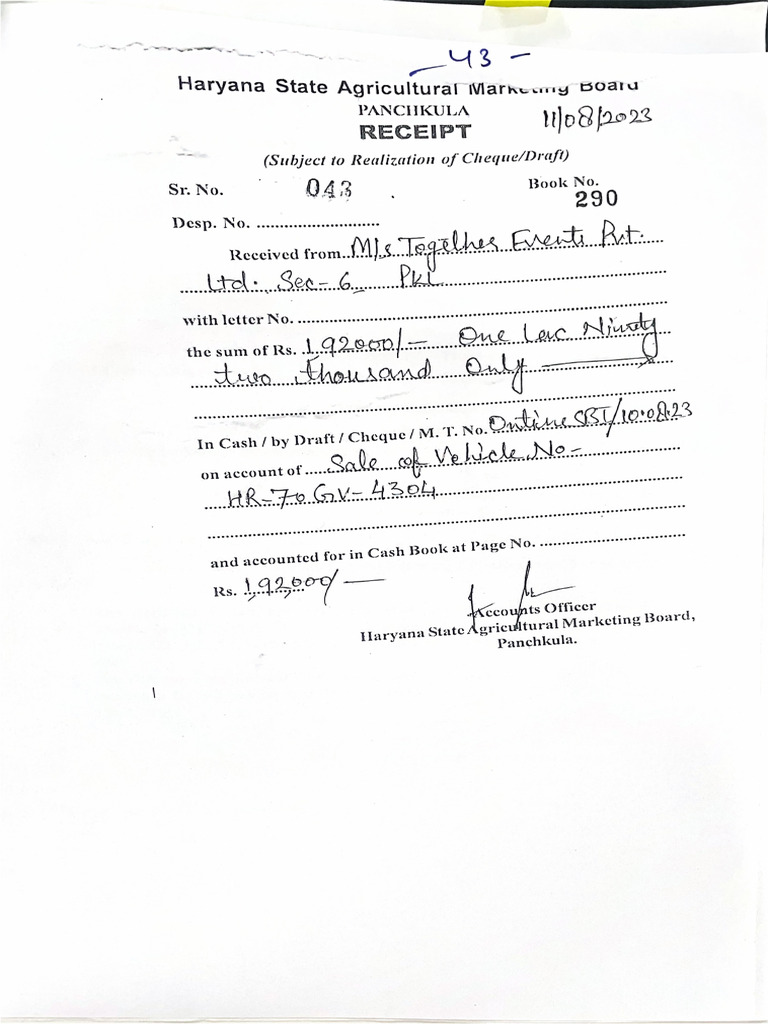 - 43 -
Haryana State Agricultural Marketing Board
PANCHKULA
11/08/2023
RECEIPT
(Subject to Realization of Cheque/Draft)
Sr. No. 043 Book No.
290
Desp. No. ............................
Received from M/s Together Events Pvt.
Ltd. Sec-6 PKL
with letter No. ............................
the sum of Rs. 1,92000/- One Lac Ninety
two thousand Only
In Cash / by Draft / Cheque / M. T. No. Online SBI/10.08.23
on account of Sale of Vehicle No-
HR-70 GV-4304
and accounted for in Cash Book at Page No. ............................
Rs. 1,92,000/-
Accounts Officer
Haryana State Agricultural Marketing Board,
Panchkula.